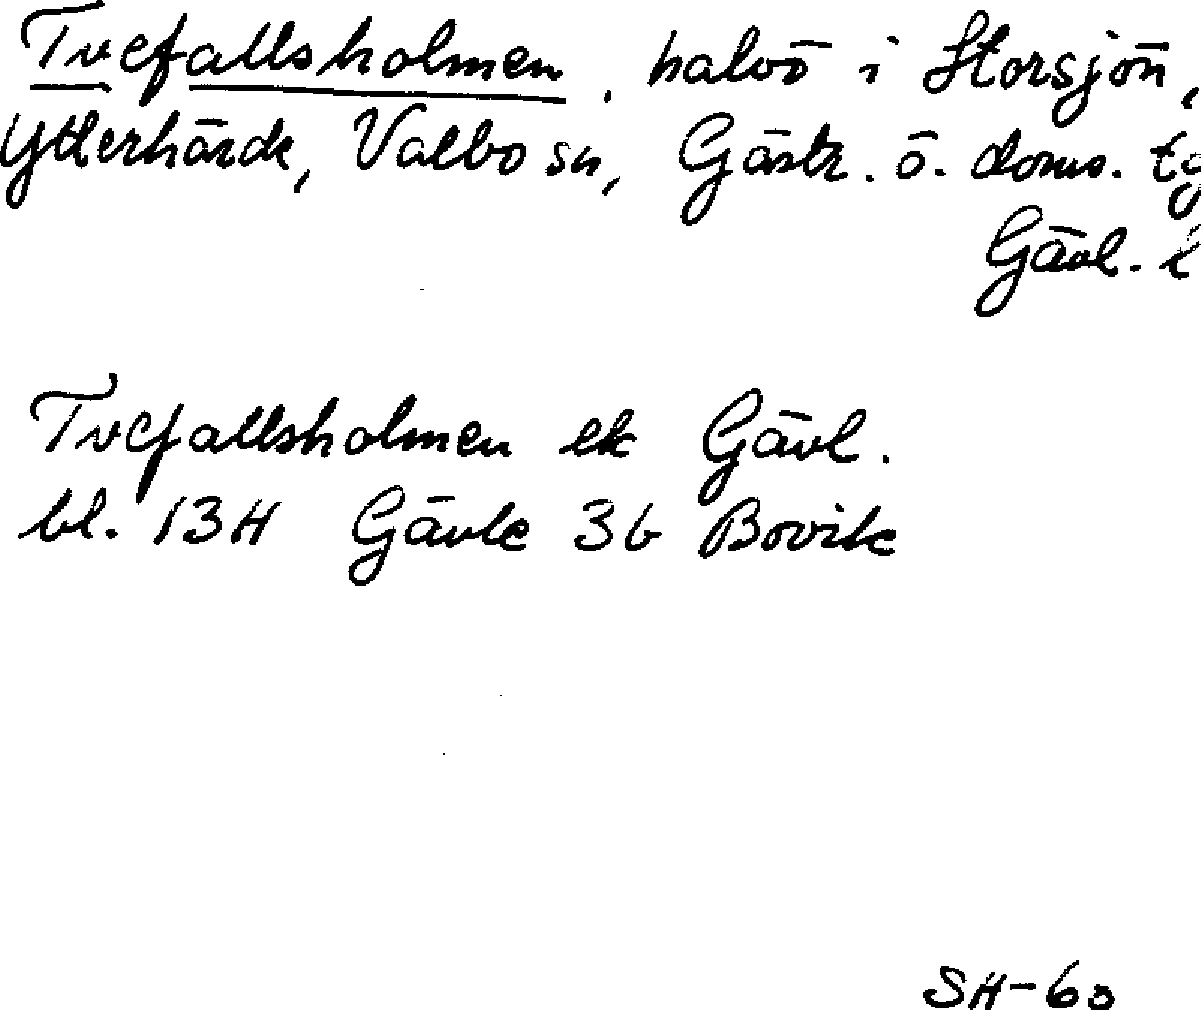 Tvefallsholmen, halvö i Storsjön,
Ytterhärde, Valbo sn, Gästr. ö. doms. tg
Gävl. l
Tvefallsholmen ek Gävl.
bl. 13H Gävle 3b Bovik
SH-60